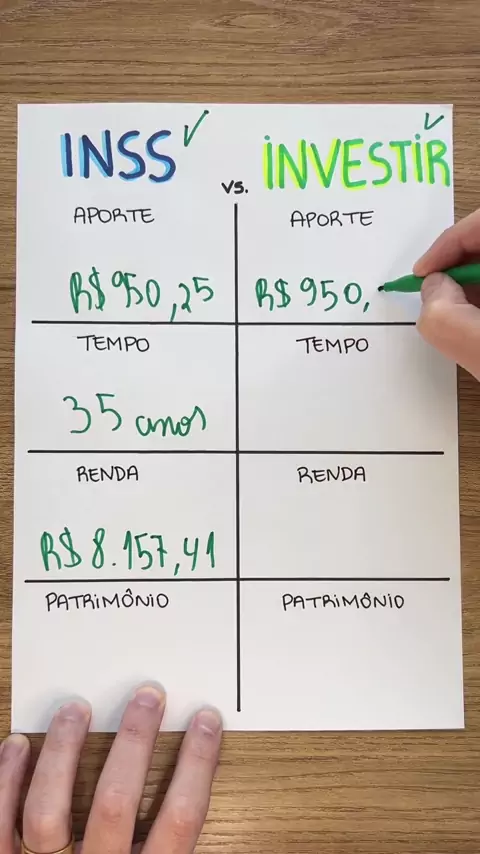 INSS vs. INVESTIR
APORTE APORTE
R$ 950,25 R$ 950,
TEMPO TEMPO
35 anos
RENDA RENDA
R$ 8.157,41
PATRIMÔNIO PATRIMÔNIO